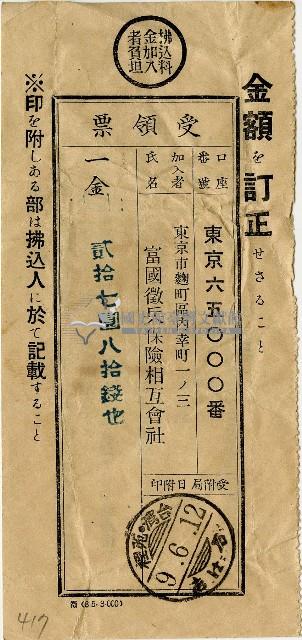 拂込料
金加入
者負担
金額を訂正せさること
票領受
口座番號
東京六五〇〇〇番
加入者氏名
東京市麴町區內幸町一ノ三
富國徵兵保險相互會社
一金
貳拾七圓八拾錢也
受附局日附印
台灣
9.6.12
※印を附しある部は拂込人に於て記載すること
417